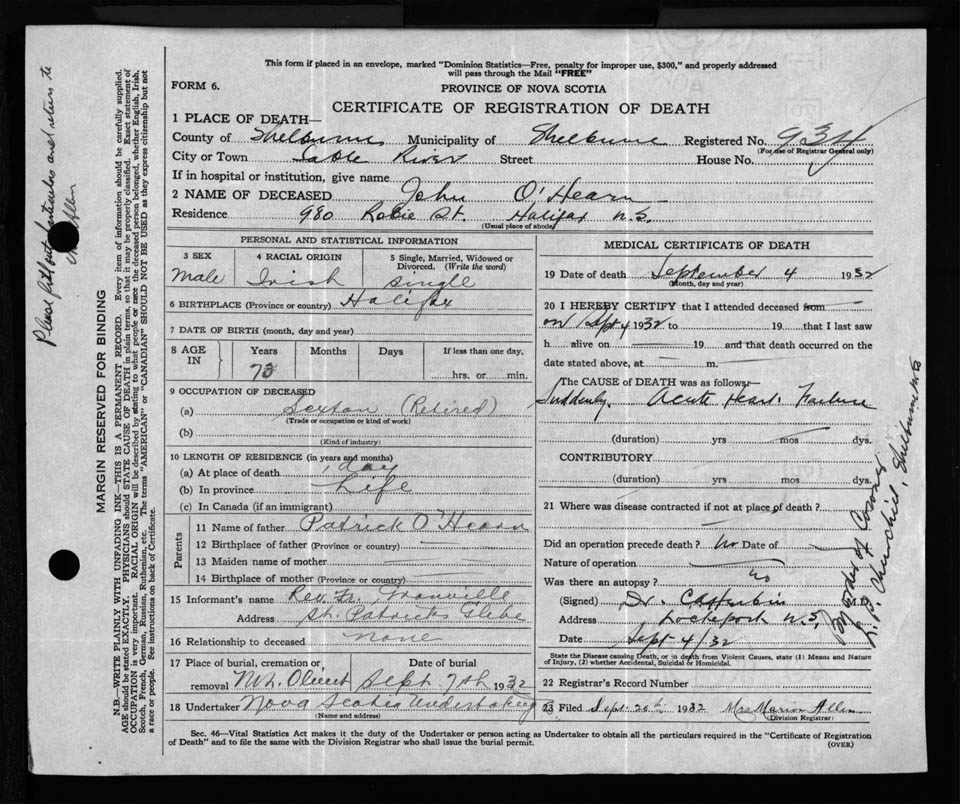 This form if placed in an envelope, marked "Dominion Statistics—Free, penalty for improper use, $300," and properly addressed
will pass through the Mail "FREE"
FORM 6.
PROVINCE OF NOVA SCOTIA
CERTIFICATE OF REGISTRATION OF DEATH
1 PLACE OF DEATH—
County of Shelburne Municipality of Shelburne Registered No. 934
(For use of Registrar General only)
City or Town Sable River Street House No.
If in hospital or institution, give name
2 NAME OF DECEASED John O'Hearn
Residence 980 Robie St. Halifax N.S.
(Usual place of abode)
PERSONAL AND STATISTICAL INFORMATION
3 SEX 4 RACIAL ORIGIN 5 Single, Married, Widowed or Divorced. (Write the word)
Male Irish Single
6 BIRTHPLACE (Province or country) Halifax
7 DATE OF BIRTH (month, day and year)
8 AGE IN Years Months Days If less than one day,
73 hrs. or min.
9 OCCUPATION OF DECEASED
(a) Sexton (Retired)
(Trade or occupation or kind of work)
(b)
(Kind of industry)
10 LENGTH OF RESIDENCE (in years and months)
(a) At place of death 1 day
(b) In province Life
(c) In Canada (if an immigrant)
Parents
11 Name of father Patrick O'Hearn
12 Birthplace of father (Province or country)
13 Maiden name of mother
14 Birthplace of mother (Province or country)
15 Informant's name Rev. Fr. Granville
Address St. Patrick's Glebe
16 Relationship to deceased none
17 Place of burial, cremation or removal Mt. Olivet Date of burial Sept. 7th 1932
18 Undertaker Nova Scotia Undertaking
(Name and address)
MEDICAL CERTIFICATE OF DEATH
19 Date of death September 4 1932
(Month, day and year)
20 I HEREBY CERTIFY that I attended deceased from
on Sept 4 1932 to 19 that I last saw
h alive on 19 and that death occurred on the
date stated above, at m.
The CAUSE OF DEATH was as follows:—
Suddenly. Acute Heart Failure
(duration) yrs mos dys.
CONTRIBUTORY
(duration) yrs mos dys.
21 Where was disease contracted if not at place of death?
Did an operation precede death? No Date of
Nature of operation
Was there an autopsy? no
(Signed) Dr. M.D.
Address Lockeport N.S.
Date Sept 4/32
State the Disease causing Death, or in death from Violent Causes, state (1) Means and Nature of Injury, (2) whether Accidental, Suicidal or Homicidal.
22 Registrar's Record Number
23 Filed Sept 20th 1932 Mrs Marion Allen
(Division Registrar)
Sec. 46—Vital Statistics Act makes it the duty of the Undertaker or person acting as Undertaker to obtain all the particulars required in the "Certificate of Registration
of Death" and to file the same with the Division Registrar who shall issue the burial permit.
(OVER)
By order of Coroner
L.P. Churchill, Shelburne N.S
Please fill out particulars and return to
Mrs Allen
MARGIN RESERVED FOR BINDING
N.B.—WRITE PLAINLY WITH UNFADING INK—THIS IS A PERMANENT RECORD. Every item of information should be carefully supplied.
AGE should be stated EXACTLY. PHYSICIANS should STATE CAUSE OF DEATH in plain terms, so that it may be properly classified. Exact statement of
OCCUPATION is very important. RACIAL ORIGIN will be described by stating to what people or race the deceased person belonged, whether English, Irish,
Scotch, French, German, Russian, Ruthenian, etc. The terms "AMERICAN" or "CANADIAN" SHOULD NOT BE USED as they express citizenship but not
a race or people. See instructions on back of Certificate.